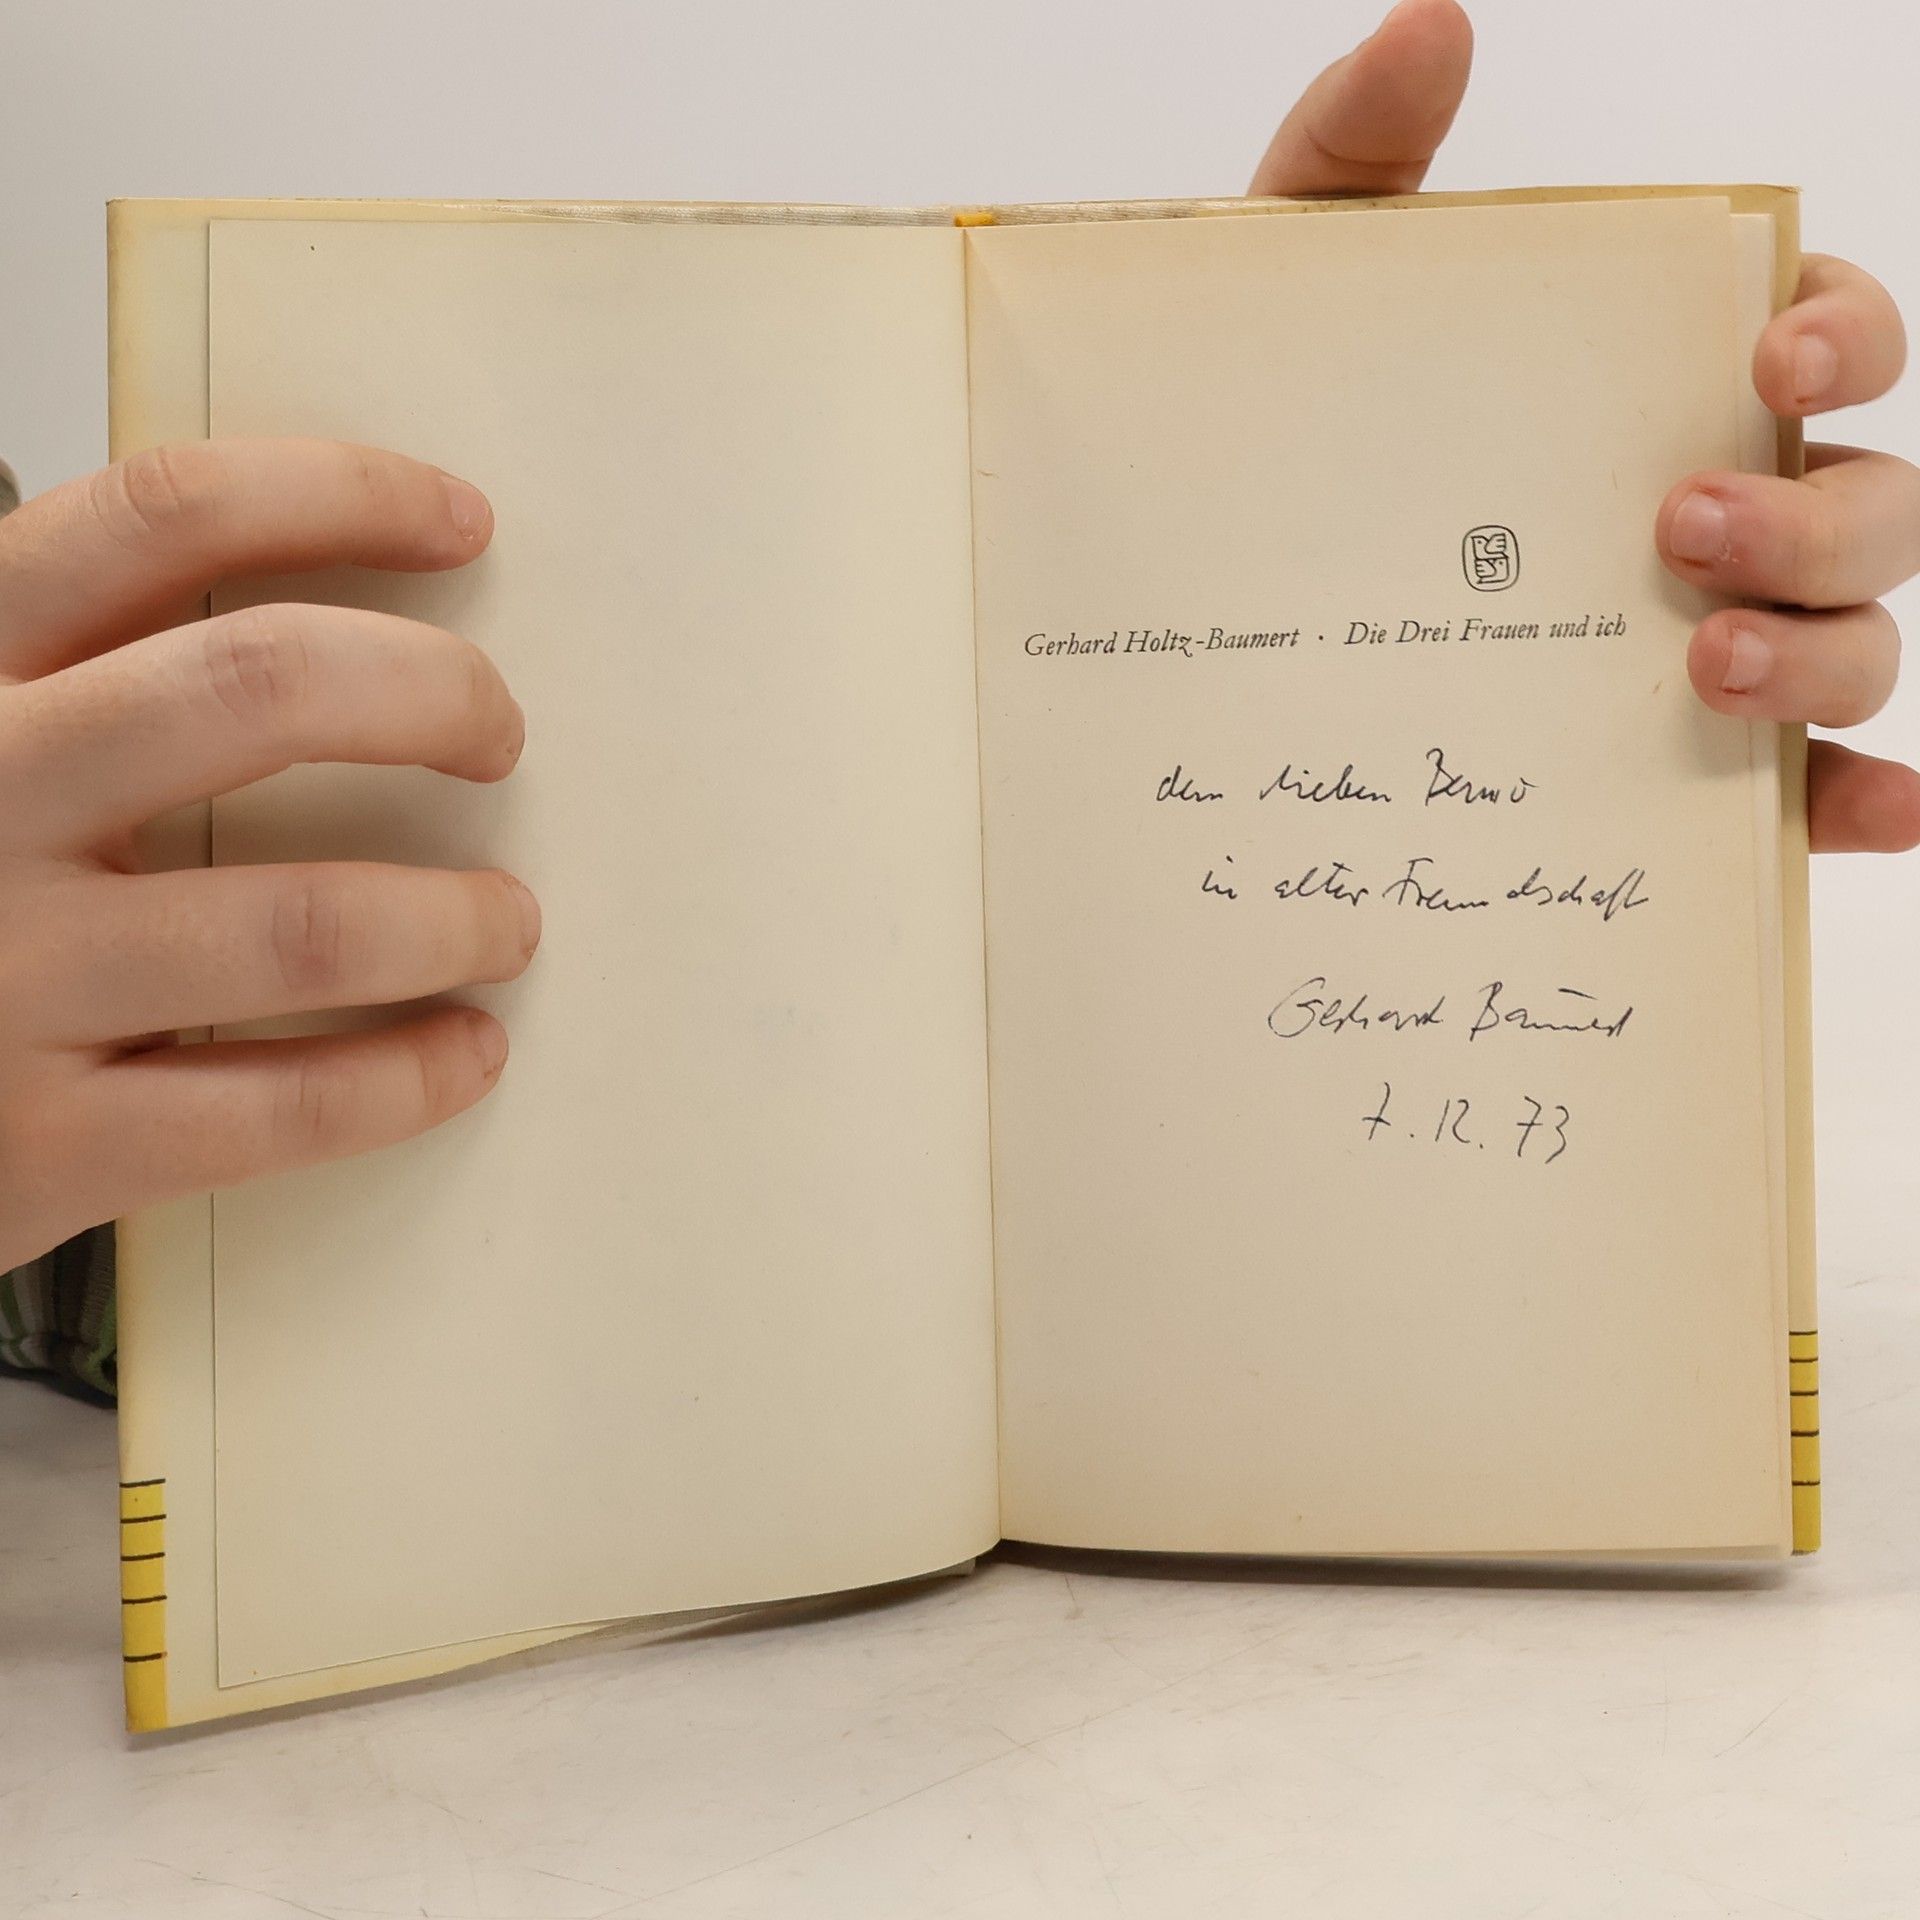 Gerhard Holtz-Baumert · Die Drei Frauen und ich
dem lieben Benno
in alter Freundschaft
Gerhard Baumert
7.12.73